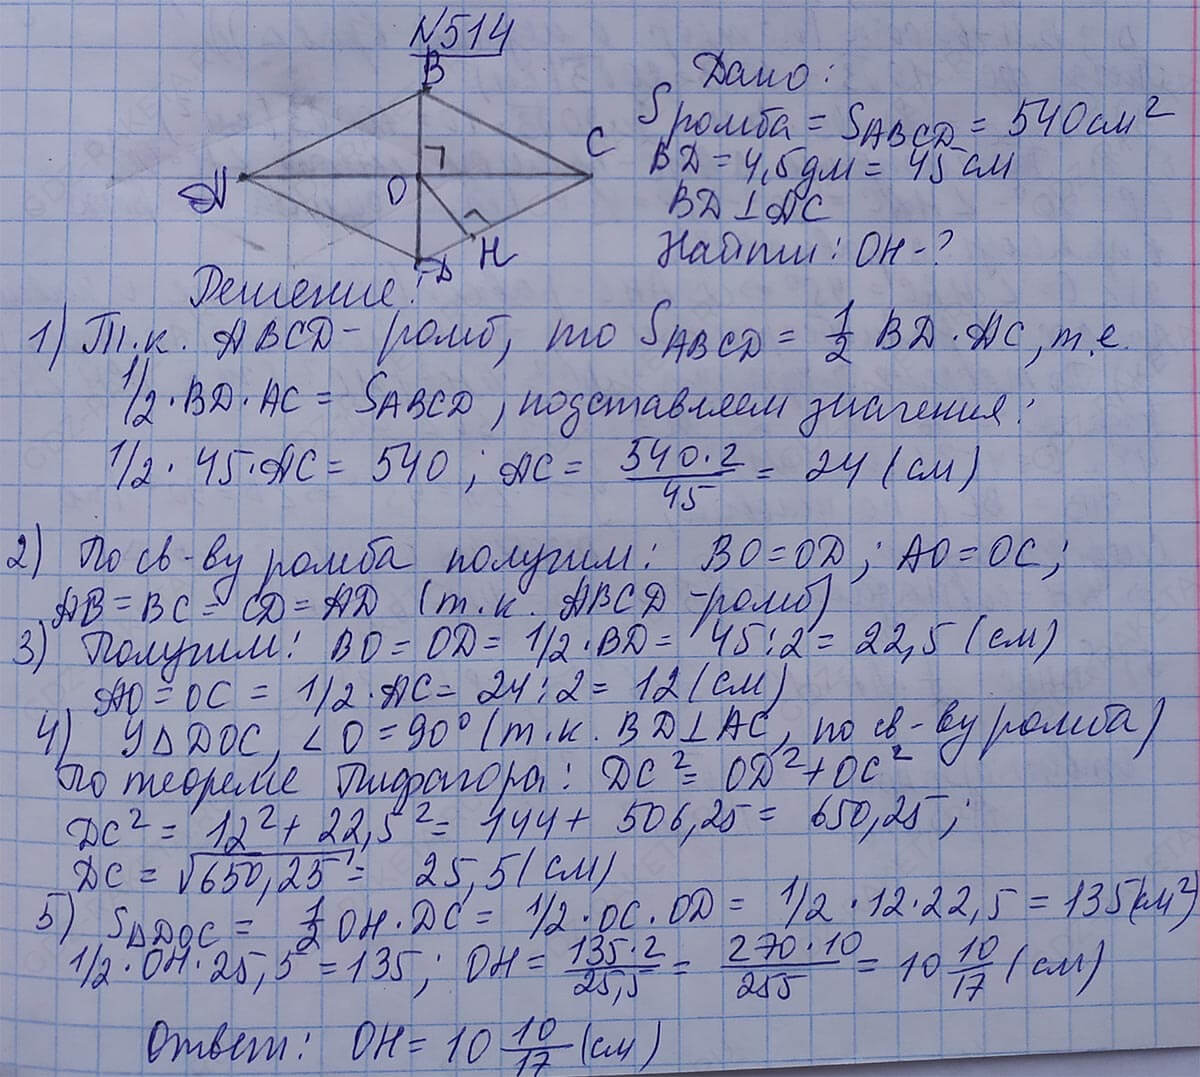 N514
B
A
O
C
D
H
Дано:
Sромба = SABCD = 540 см²
BD = 4,5 дм = 45 см
BD ⊥ AC
Найти: OH - ?
Решение:
1) Т.к. ABCD - ромб, то SABCD = 1/2 BD · AC, т.е.
1/2 · BD · AC = SABCD, подставляем значения:
1/2 · 45 · AC = 540; AC = 540·2/45 = 24 (см)
2) По св-ву ромба получим: BO = OD; AO = OC;
AB = BC = CD = AD (т.к. ABCD - ромб)
3) Получим: BO = OD = 1/2 · BD = 45 : 2 = 22,5 (см)
AO = OC = 1/2 · AC = 24 : 2 = 12 (см)
4) У Δ DOC, ∠O = 90° (т.к. BD ⊥ AC, по св-ву ромба)
По теореме Пифагора: DC² = OD² + OC²
DC² = 12² + 22,5² = 144 + 506,25 = 650,25;
DC = √650,25 = 25,5 (см)
5) SΔDOC = 1/2 OH · DC = 1/2 · OC · OD = 1/2 · 12 · 22,5 = 135 (см²)
1/2 · OH · 25,5 = 135; OH = 135·2/25,5 = 270·10/255 = 10 10/17 (см)
Ответ: OH = 10 10/17 (см)